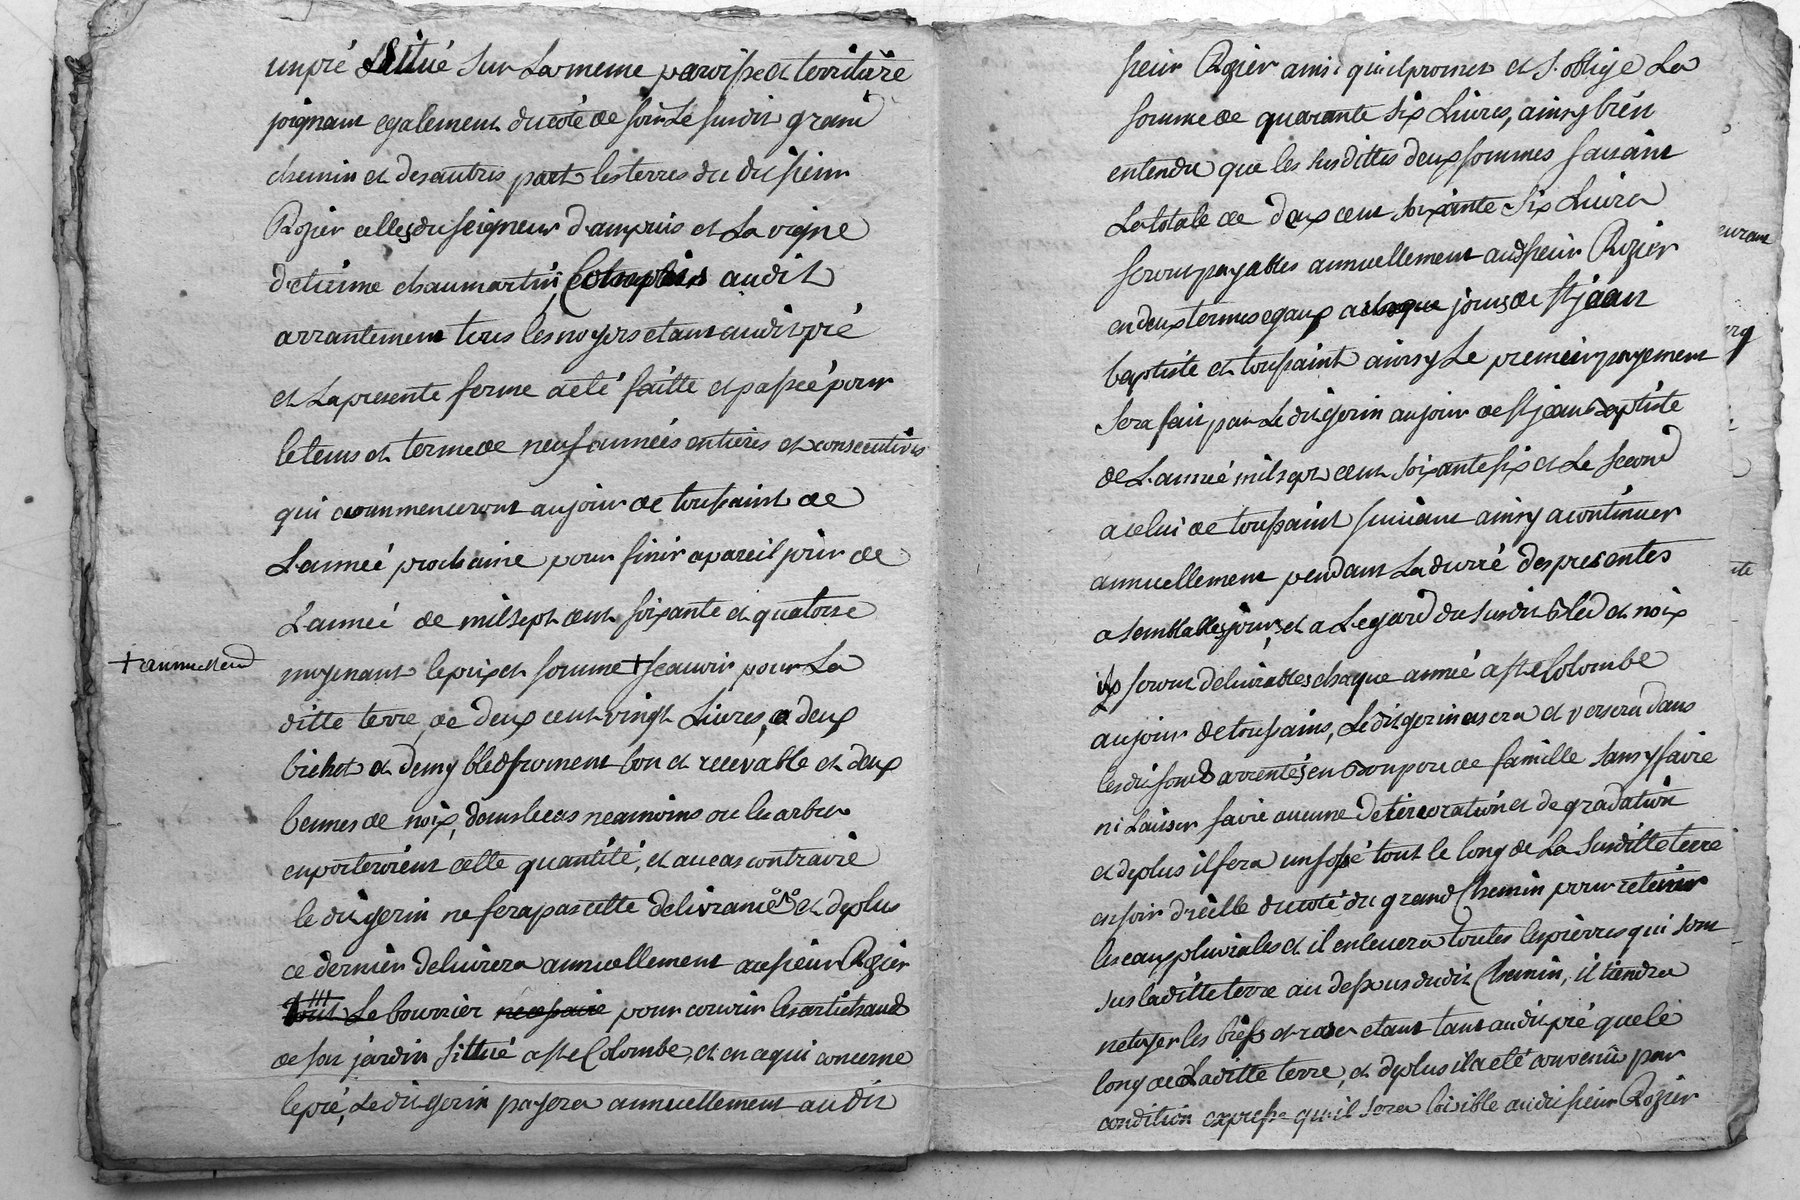 un pré situé sur la meme paroisse et territoire
joignant egalement du coté de soir le susdit grand
chemin et des autres part les terres du dit sieur
Rozier celles du seigneur d'ampuis et la vigne
d'etienne chaumartin, Compris audit
arrantement tous les noyers etant audit pré
et la presente ferme a eté faitte et passée pour
le tems et terme de neuf années entieres et consecutives
qui commenceront au jour de toussaint de
L'année prochaine pour finir a pareil jour de
L'année de mil sept cent soixante et quatorse
+ annuellemt
moyenant le prix et somme + scavoir pour La
ditte terre, de deux cent vingt Livres, a deux
bichet et demy bled froment bon et recevable et deux
bennes de noix, dans le cas neamoins ou les arbres
en porteroient cette quantité, et au cas contraire
le dit gerin ne fera pas cette delivrance et de plus
ce dernier delivrera annuellement au sieur Rozier
tout Le bourrier necessaire pour couvrir les artichauds
de son jardin situé a ste Colombe, et en ce qui concerne
le pré, Le dit gerin payera annuellement au dit
sieur Rozier ainsi qu'il promet et s'oblige La
somme de quarante six Livres, ainsy bien
entendu que les susdittes deux sommes faisant
La totale de deux cent soixante six Livres
seront payables annuellement audt sieur Rozier
en deux termes egaux a chaque jours de st jean
baptiste et toussaint ainsy Le premier payement
sera fait par Le dit gerin au jour de st jean baptiste
de L'année mil sept cent soixante six et Le second
a celui de toussaint suivant ainsy a continuer
annuellement pendant La durré des presentes
a semblables jours, et a L'egard du susdit bled et noix
ils seront delivrables chaque année a ste Colombe
au jour de toussains, Le dit gerin usera et versera dans
les dit fonds arrentés en bon pere de famille sans y faire
ni laisser faire aucune deterioration et degradation
et de plus il fera un fossé tout le long de La susditte terre
en soir d'icelle du coté du grand Chemin pour retenir
les eaux pluviales et il enlevera toutes les pierres qui sont
sus la ditte terre au dessous du dit Chemin, il tiendra
netoyer les biefs et rases etant tant audit pré que le
long de Laditte terre, et de plus il a eté convenu par
condition expresse qu'il sera loisible audit sieur Rozier